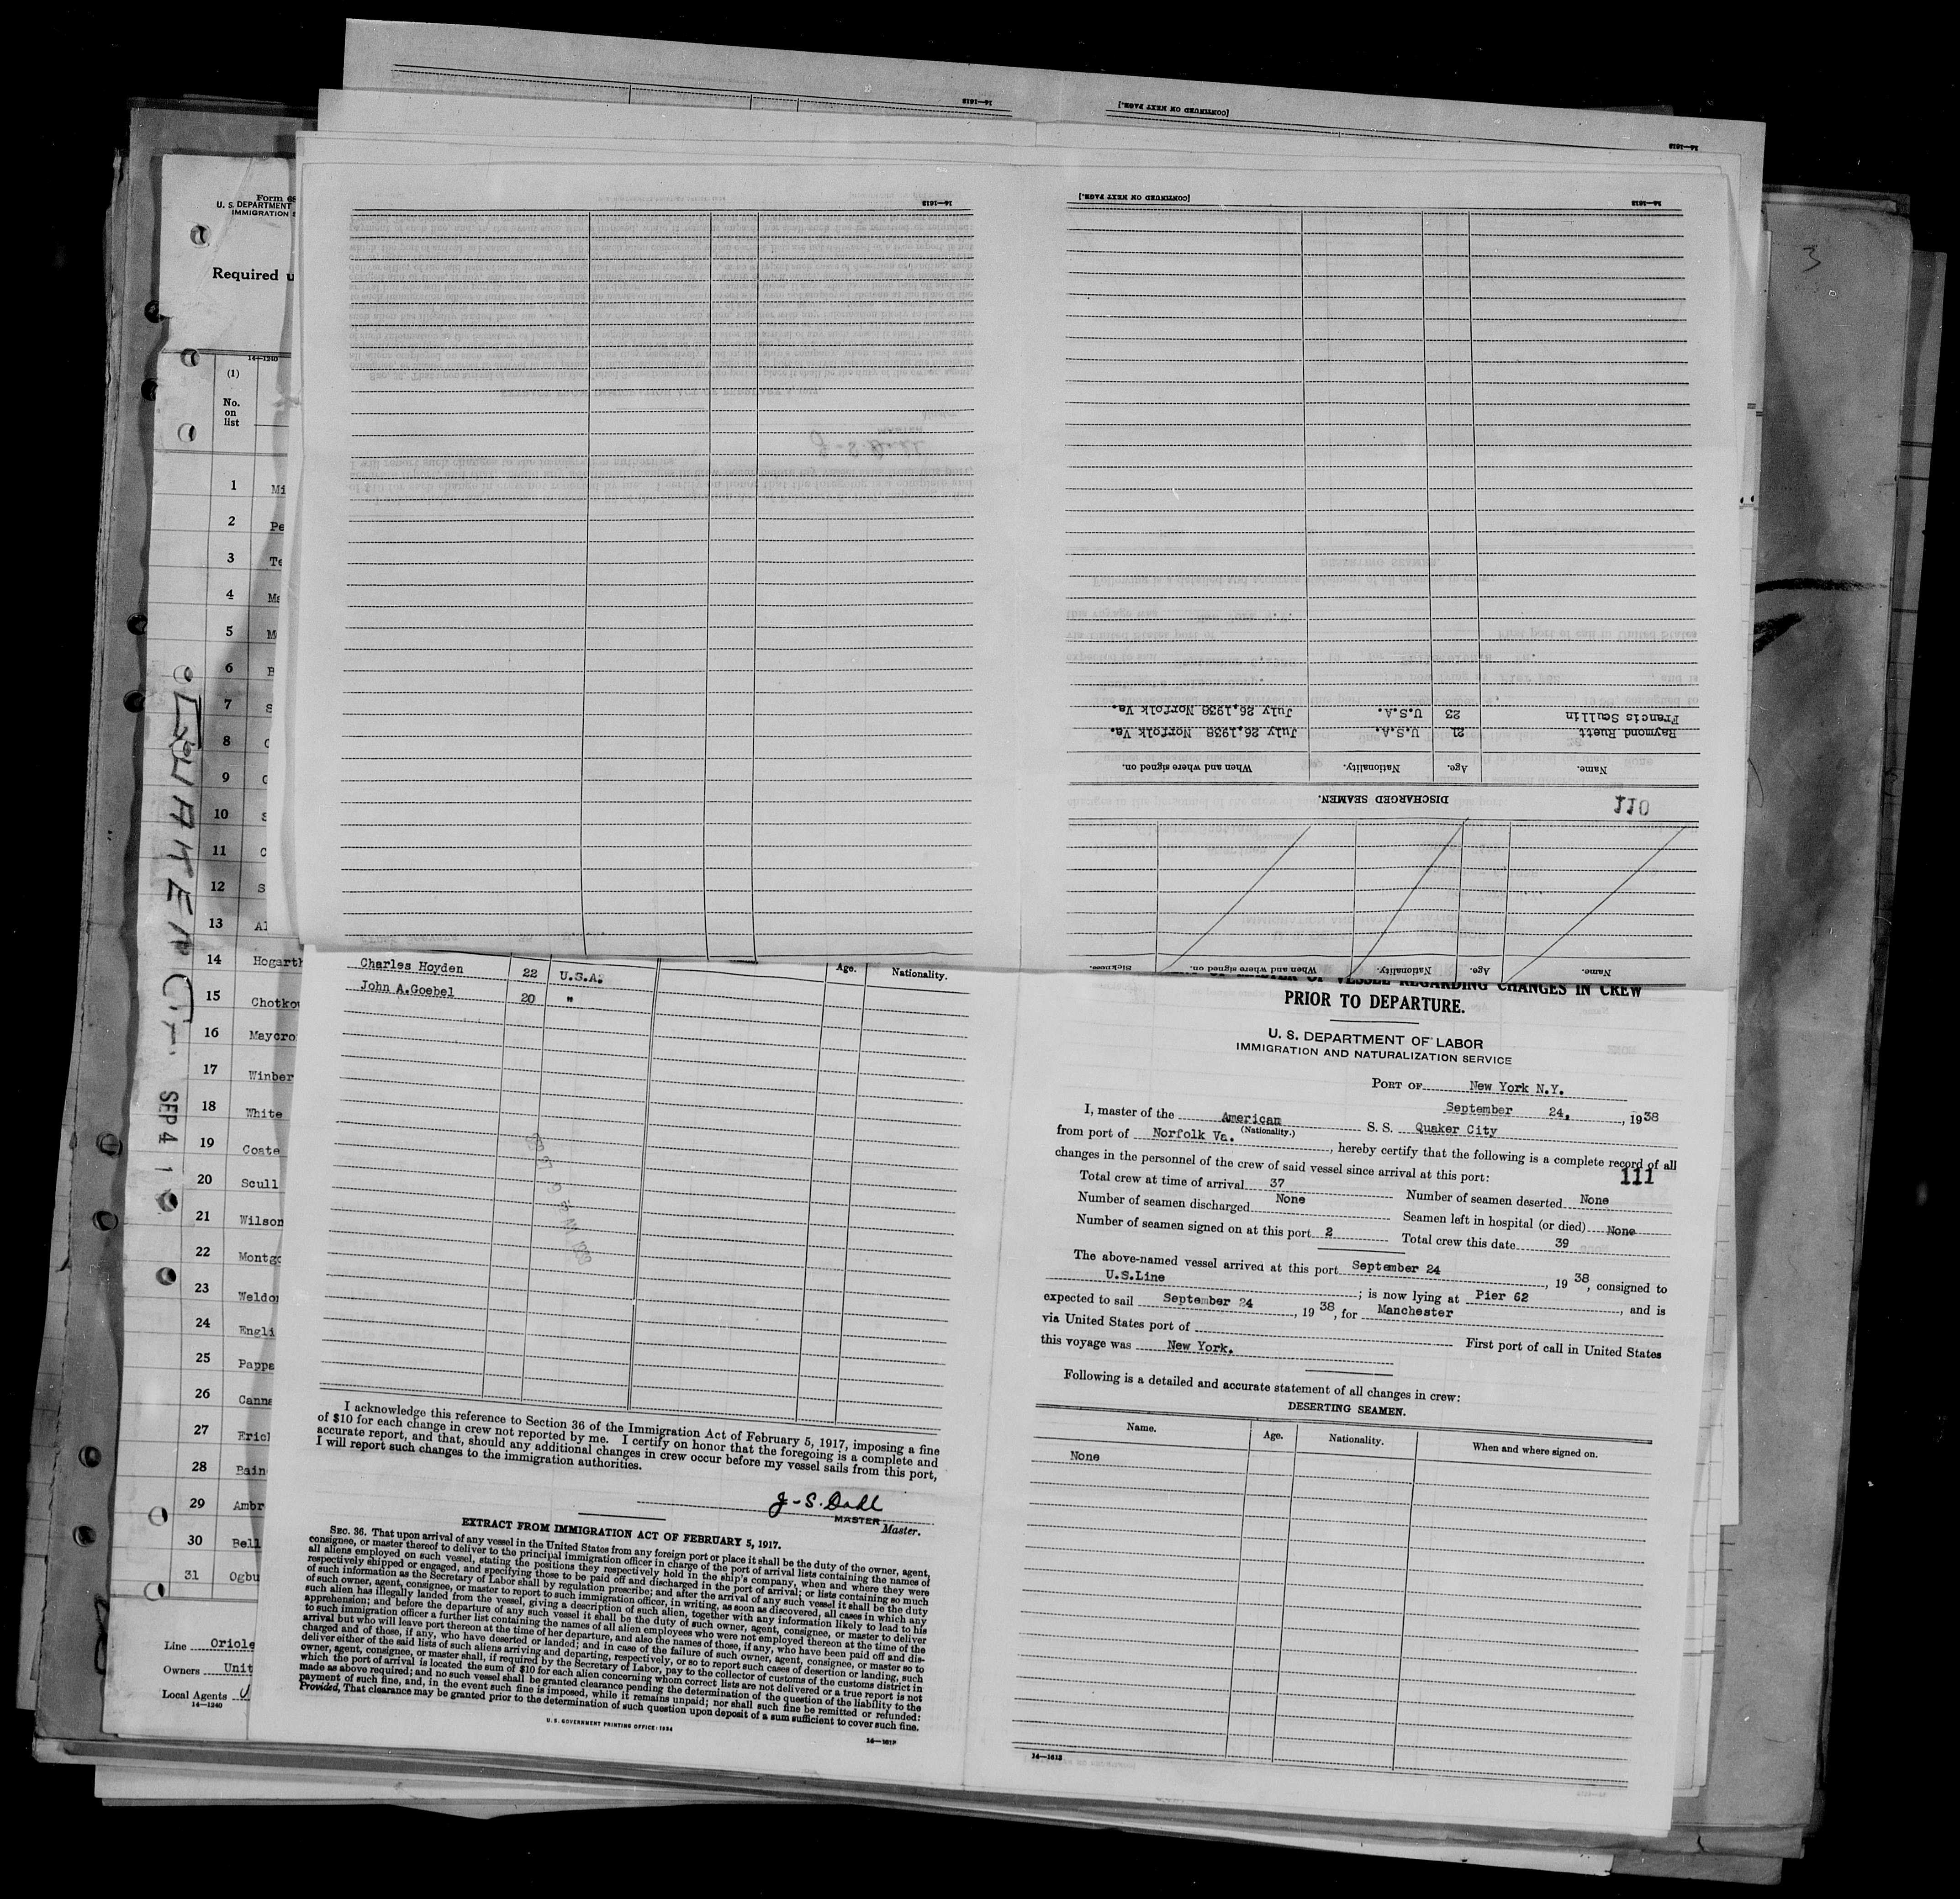 Form 68
U. S. DEPARTMENT
IMMIGRATION S
Required u
14—1240
(1)
No.
on
list
1 Mi
2 Pe
3 Te
4 Ma
5 M
6 B
7 S
8
9
10 S
11 C
12 S
13 Al
14 Hogarth
15 Chotkow
16 Maycro
17 Winber
18 White
19 Coate
20 Scull
21 Wilson
22 Montgo
23 Weldon
24 Engli
25 Pappa
26 Canna
27 Erich
28 Bain
29 Ambr
30 Bell
31 Ogbu
SEP 4 1
Line Oriole
Owners Unit
Local Agents U
14—1240
3
16—1613
[CONTINUED ON NEXT PAGE.]
16—1613
16—1613
[CONTINUED ON NEXT PAGE.]
16—1613
Francis Scullin 23 U.S.A. July 26,1938 Norfolk Va.
Raymond Ruett 21 U.S.A. July 26,1938 Norfolk Va.
Name. Age. Nationality. When and where signed on.
DISCHARGED SEAMEN.
110
Name. Age. Nationality. When and where signed on. Sickness.
Age. Nationality.
Charles Hoyden 22 U.S.A.
John A.Goebel 20 "
I acknowledge this reference to Section 36 of the Immigration Act of February 5, 1917, imposing a fine
of $10 for each change in crew not reported by me. I certify on honor that the foregoing is a complete and
accurate report, and that, should any additional changes in crew occur before my vessel sails from this port,
I will report such changes to the immigration authorities.
J-S. Dahl
MASTER
Master.
EXTRACT FROM IMMIGRATION ACT OF FEBRUARY 5, 1917.
SEC. 36. That upon arrival of any vessel in the United States from any foreign port or place it shall be the duty of the owner, agent,
consignee, or master thereof to deliver to the principal immigration officer in charge of the port of arrival lists containing the names of
all aliens employed on such vessel, stating the positions they respectively hold in the ship's company, when and where they were
respectively shipped or engaged, and specifying those to be paid off and discharged in the port of arrival; or lists containing so much
of such information as the Secretary of Labor shall by regulation prescribe; and after the arrival of any such vessel it shall be the duty
of such owner, agent, consignee, or master to report to such immigration officer, in writing, as soon as discovered, all cases in which any
such alien has illegally landed from the vessel, giving a description of such alien, together with any information likely to lead to his
apprehension; and before the departure of any such vessel it shall be the duty of such owner, agent, consignee, or master to deliver
to such immigration officer a further list containing the names of all alien employees who were not employed thereon at the time of the
arrival but who will leave port thereon at the time of her departure, and also the names of those, if any, who have been paid off and dis-
charged and of those, if any, who have deserted or landed; and in case of the failure of such owner, agent, consignee, or master so to
deliver either of the said lists of such aliens arriving and departing, respectively, or so to report such cases of desertion or landing, such
owner, agent, consignee, or master shall, if required by the Secretary of Labor, pay to the collector of customs of the customs district in
which the port of arrival is located the sum of $10 for each alien concerning whom correct lists are not delivered or a true report is not
made as above required; and no such vessel shall be granted clearance pending the determination of the question of the liability to the
payment of such fine, and, in the event such fine is imposed, while it remains unpaid; nor shall such fine be remitted or refunded:
Provided, That clearance may be granted prior to the determination of such question upon deposit of a sum sufficient to cover such fine.
U. S. GOVERNMENT PRINTING OFFICE: 1934
16—1613
OF MASTER OF VESSEL REGARDING CHANGES IN CREW
PRIOR TO DEPARTURE.
U. S. DEPARTMENT OF LABOR
IMMIGRATION AND NATURALIZATION SERVICE
PORT OF New York N.Y.
September 24, , 1938
I, master of the American S. S. Quaker City
(Nationality.)
from port of Norfolk Va. , hereby certify that the following is a complete record of all
changes in the personnel of the crew of said vessel since arrival at this port:
111
Total crew at time of arrival 37 Number of seamen deserted None
Number of seamen discharged None Seamen left in hospital (or died) None
Number of seamen signed on at this port 2 Total crew this date 39
The above-named vessel arrived at this port September 24 , 19 38, consigned to
U.S.Line ; is now lying at Pier 62 , and is
expected to sail September 24 , 19 38, for Manchester
via United States port of First port of call in United States
this voyage was New York.
Following is a detailed and accurate statement of all changes in crew:
DESERTING SEAMEN.
Name. Age. Nationality. When and where signed on.
None
14—1613